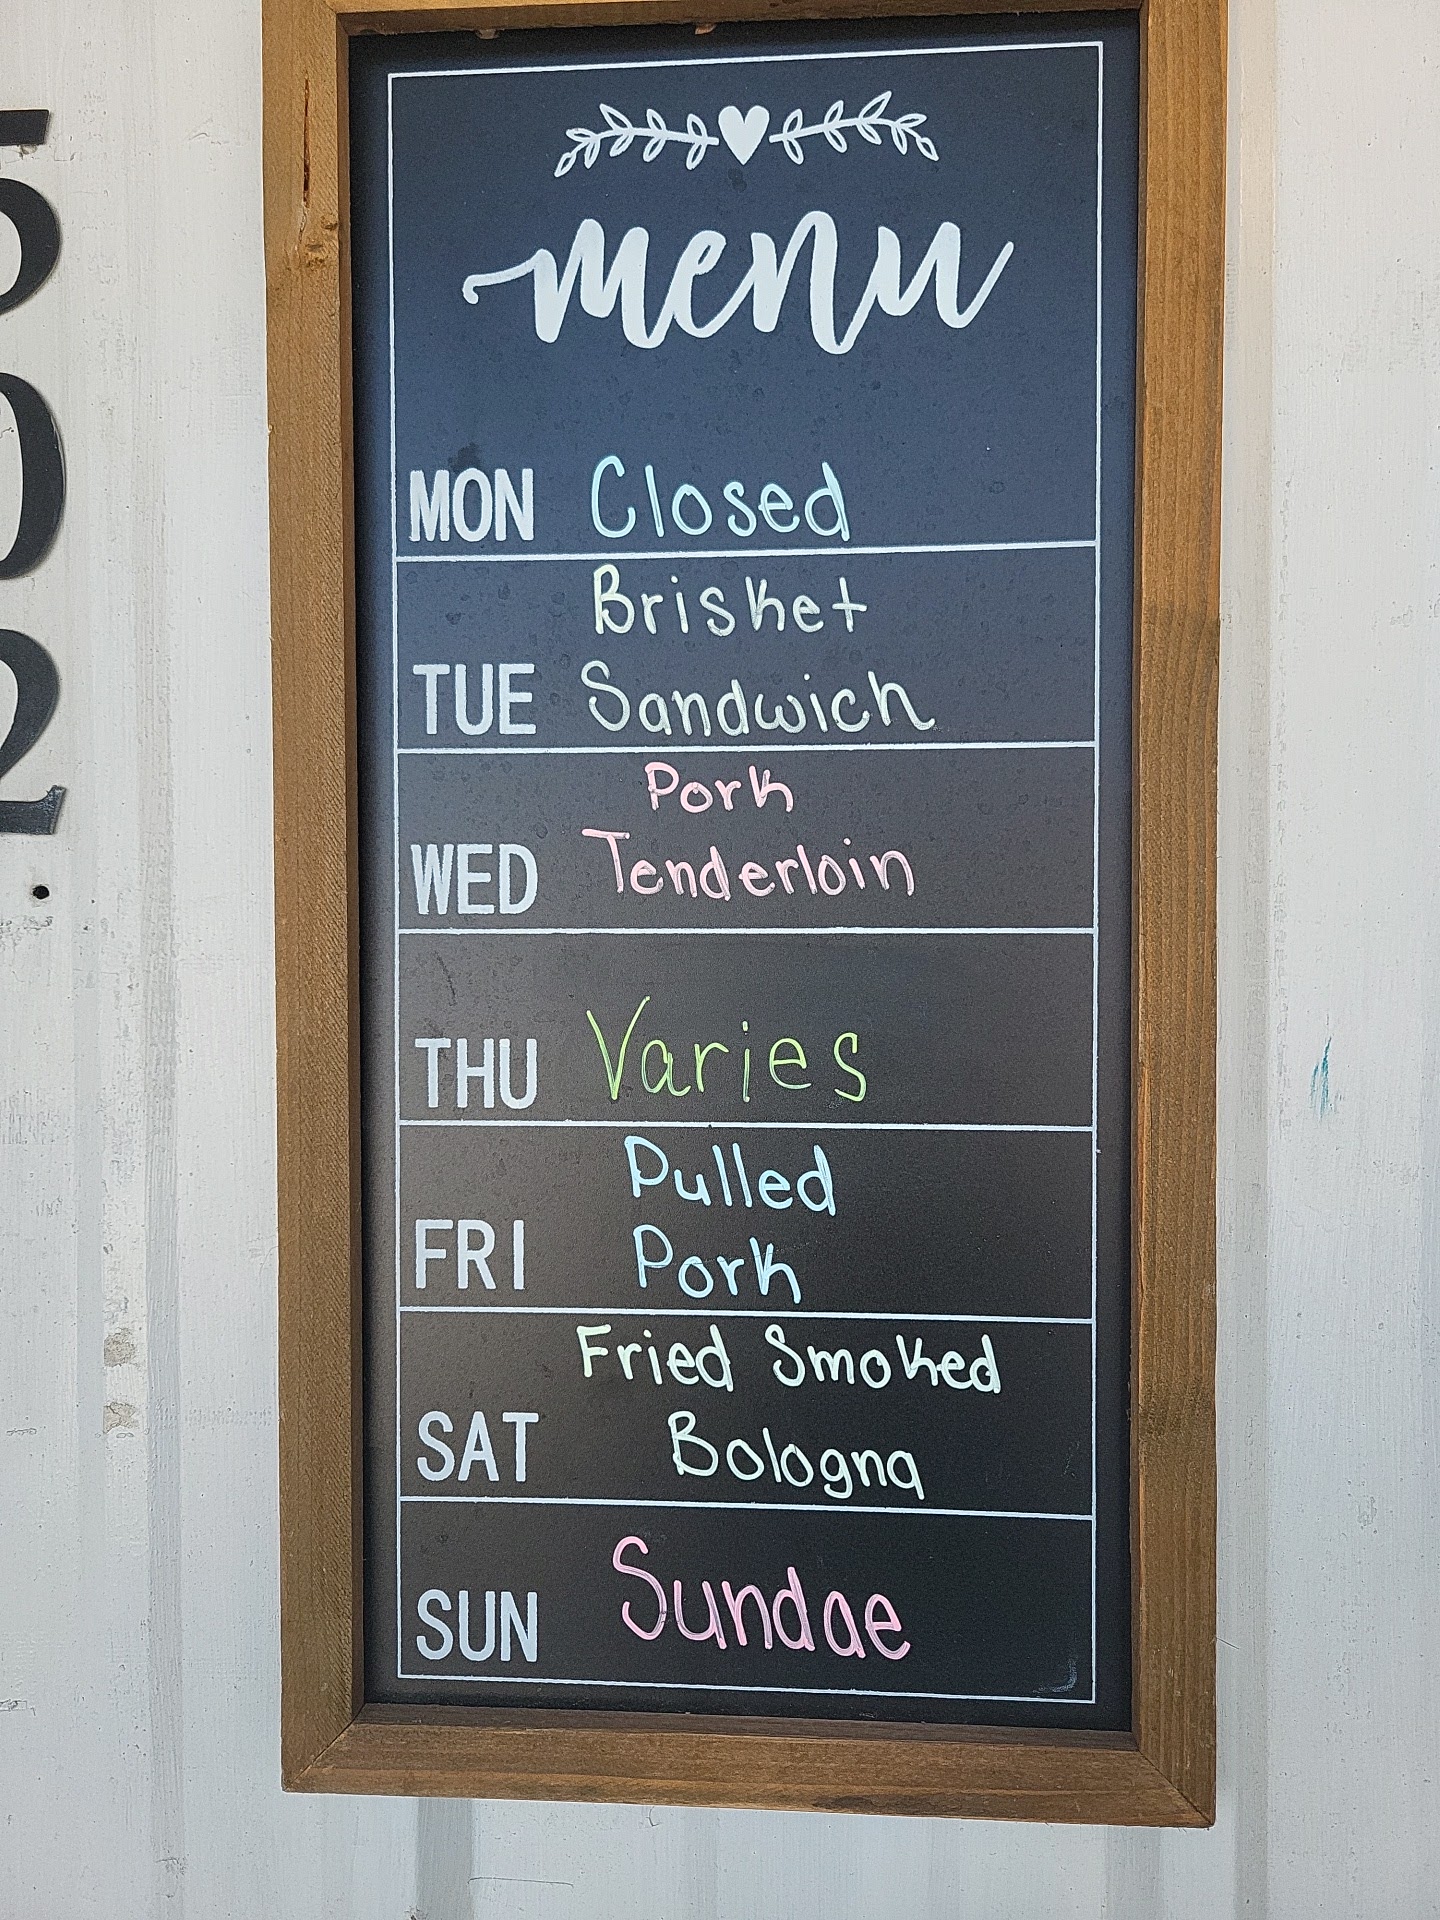 menu
MON Closed
Brisket
TUE Sandwich
Pork
WED Tenderloin
THU Varies
Pulled
FRI Pork
Fried Smoked
SAT Bologna
SUN Sundae